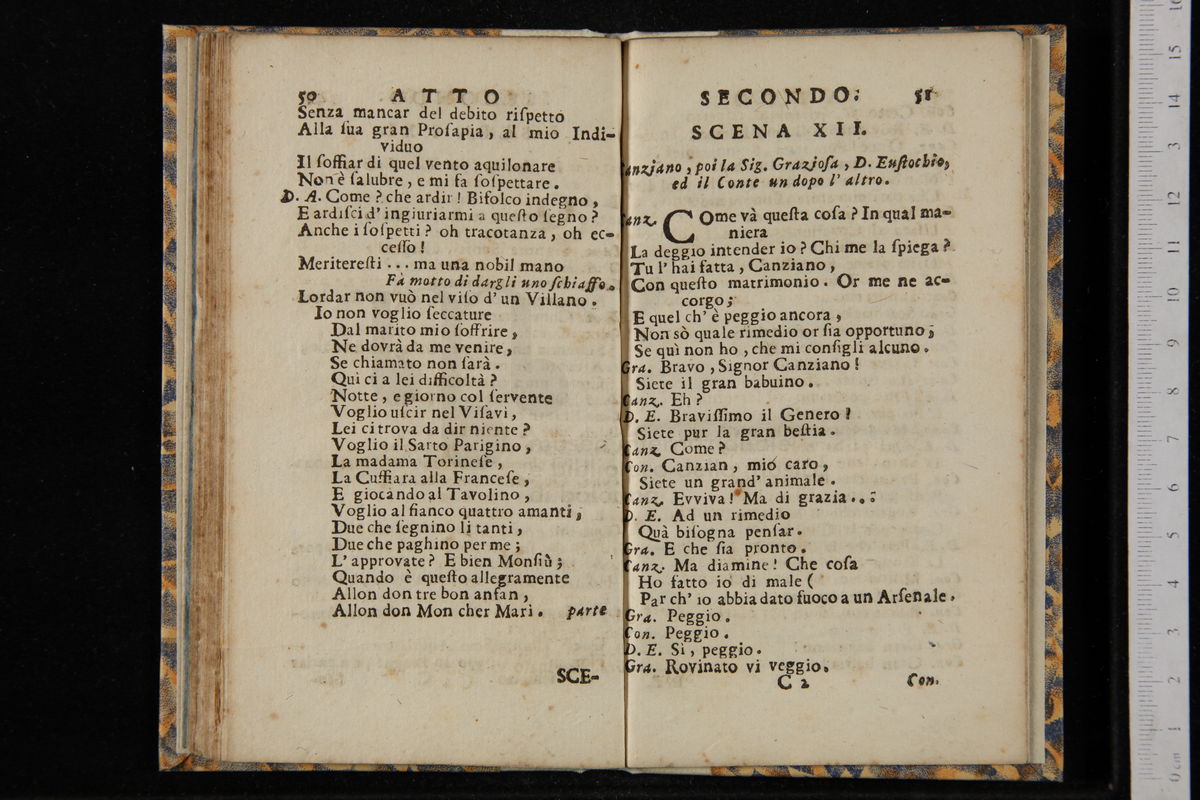 50 ATTO
Senza mancar del debito riſpetto
Alla ſua gran Proſapia, al mio Indi-
viduo
Il ſoffiar di quel vento aquilonare
Non è ſalubre, e mi fa ſoſpettare.
D. A. Come? che ardir! Bifolco indegno,
E ardiſci d' ingiuriarmi a queſto ſegno?
Anche i ſoſpetti? oh tracotanza, oh ec-
ceſſo!
Meritereſti ... ma una nobil mano
Fà motto di dargli uno ſchiaffo.
Lordar non vuò nel viſo d' un Villano.
Io non voglio ſeccature
Dal marito mio ſoffrire,
Ne dovrà da me venire,
Se chiamato non ſarà.
Qui ci a lei difficoltà?
Notte, e giorno col ſervente
Voglio uſcir nel Viſavi,
Lei ci trova da dir niente?
Voglio il Sarto Parigino,
La madama Torineſe,
La Cuffiara alla Franceſe,
E giocando al Tavolino,
Voglio al fianco quattro amanti,
Due che ſegnino li tanti,
Due che paghino per me;
L' approvate? E bien Monſiù;
Quando è queſto allegramente
Allon don tre bon anfan,
Allon don Mon cher Marì. parte
SCE-
SECONDO. 51
SCENA XII.
Canziano, poi la Sig. Grazioſa, D. Euſtochio,
ed il Conte un dopo l' altro.
Canz. COme và queſta coſa? In qual ma-
niera
La deggio intender io? Chi me la ſpiega?
Tu l' hai fatta, Canziano,
Con queſto matrimonio. Or me ne ac-
corgo;
E quel ch' è peggio ancora,
Non sò quale rimedio or ſia opportuno;
Se quì non ho, che mi conſigli alcuno.
Gra. Bravo, Signor Canziano!
Siete il gran babuino.
Canz. Eh?
D. E. Braviſſimo il Genero!
Siete pur la gran beſtia.
Canz. Come?
Con. Canzian, mio caro,
Siete un grand' animale.
Canz. Evviva! Ma di grazia...
D. E. Ad un rimedio
Quà biſogna penſar.
Gra. E che ſia pronto.
Canz. Ma diamine! Che coſa
Ho fatto io di male (
Par ch' io abbia dato fuoco a un Arſenale.
Gra. Peggio.
Con. Peggio.
D. E. Sì, peggio.
Gra. Rovinato vi veggio.
C 2 Con.